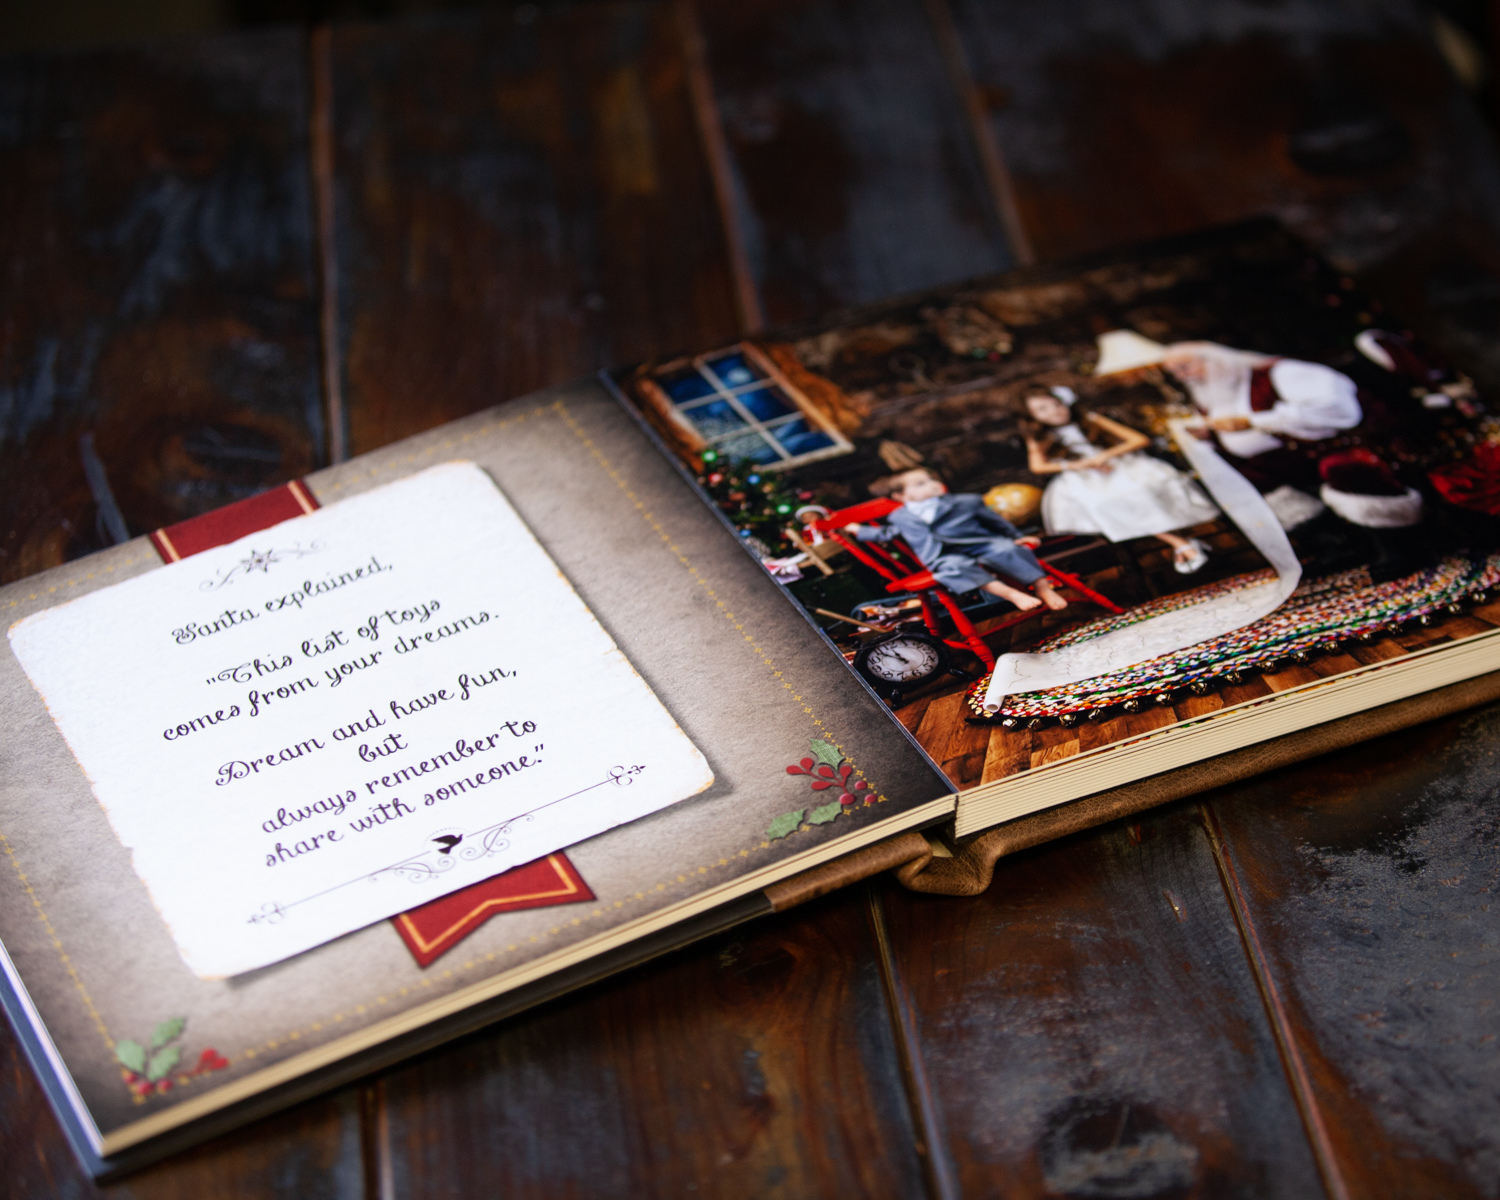 Santa explained,
"This list of toys
comes from your dreams.
Dream and have fun,
but
always remember to
share with someone."